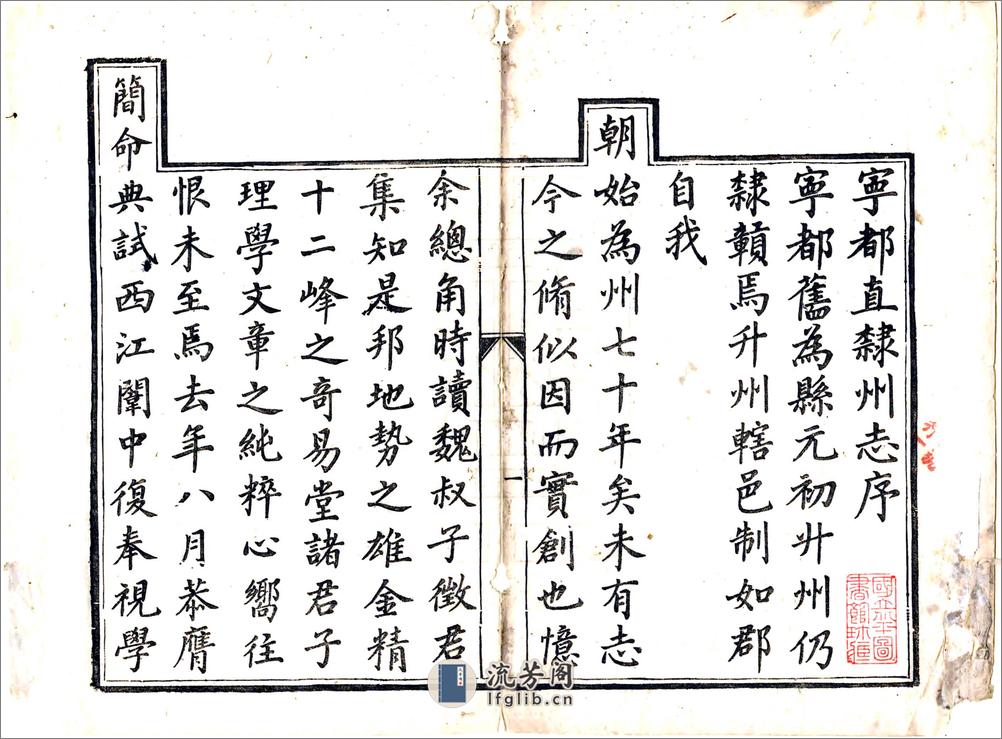 寧都直隸州志序
寧都舊為縣元初升州仍
隸贛焉升州轄邑制如郡
自我
朝始為州七十年矣未有志
今之脩似因而實創也憶
一
余總角時讀魏叔子徵君
集知是邦地勢之雄金精
十二峰之奇易堂諸君子
理學文章之純粹心嚮往
恨未至焉去年八月恭膺
簡命典試西江闈中復奉視學
流芳阁
lfglib.cn